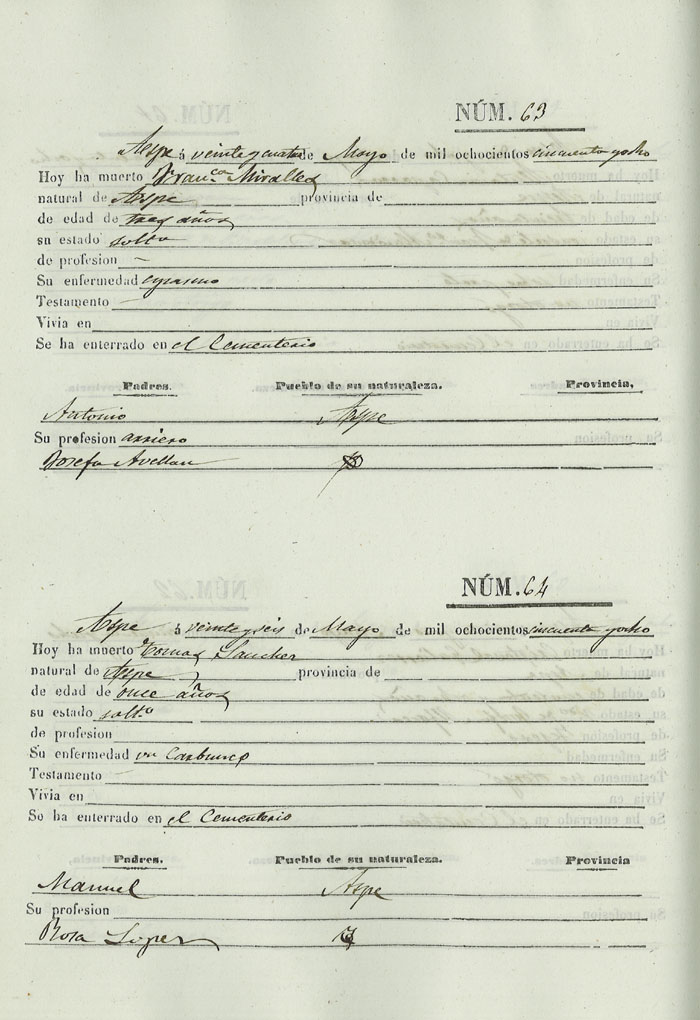 NÚM. 63
Aspe á veinte y cuatro de Mayo de mil ochocientos cincuenta y ocho
Hoy ha muerto Fran.ca Miralles
natural de Aspe provincia de
de edad de tres años
su estado solt.a
de profesion –
Su enfermedad
Testamento –
Vivia en
Se ha enterrado en el Cementerio
Padres. Pueblo de su naturaleza. Provincia,
Antonio Aspe
Su profesion arriero
Josefa Avellan
NÚM. 64
Aspe á veinte y seis de Mayo de mil ochocientos cincuenta y ocho
Hoy ha muerto Tomas Sanches
natural de Aspe provincia de
de edad de once años
su estado solt.o
de profesion
Su enfermedad un Carbunco
Testamento –
Vivia en
Se ha enterrado en el Cementerio
Padres. Pueblo de su naturaleza. Provincia
Manuel Aspe
Su profesion
Rosa Lopez